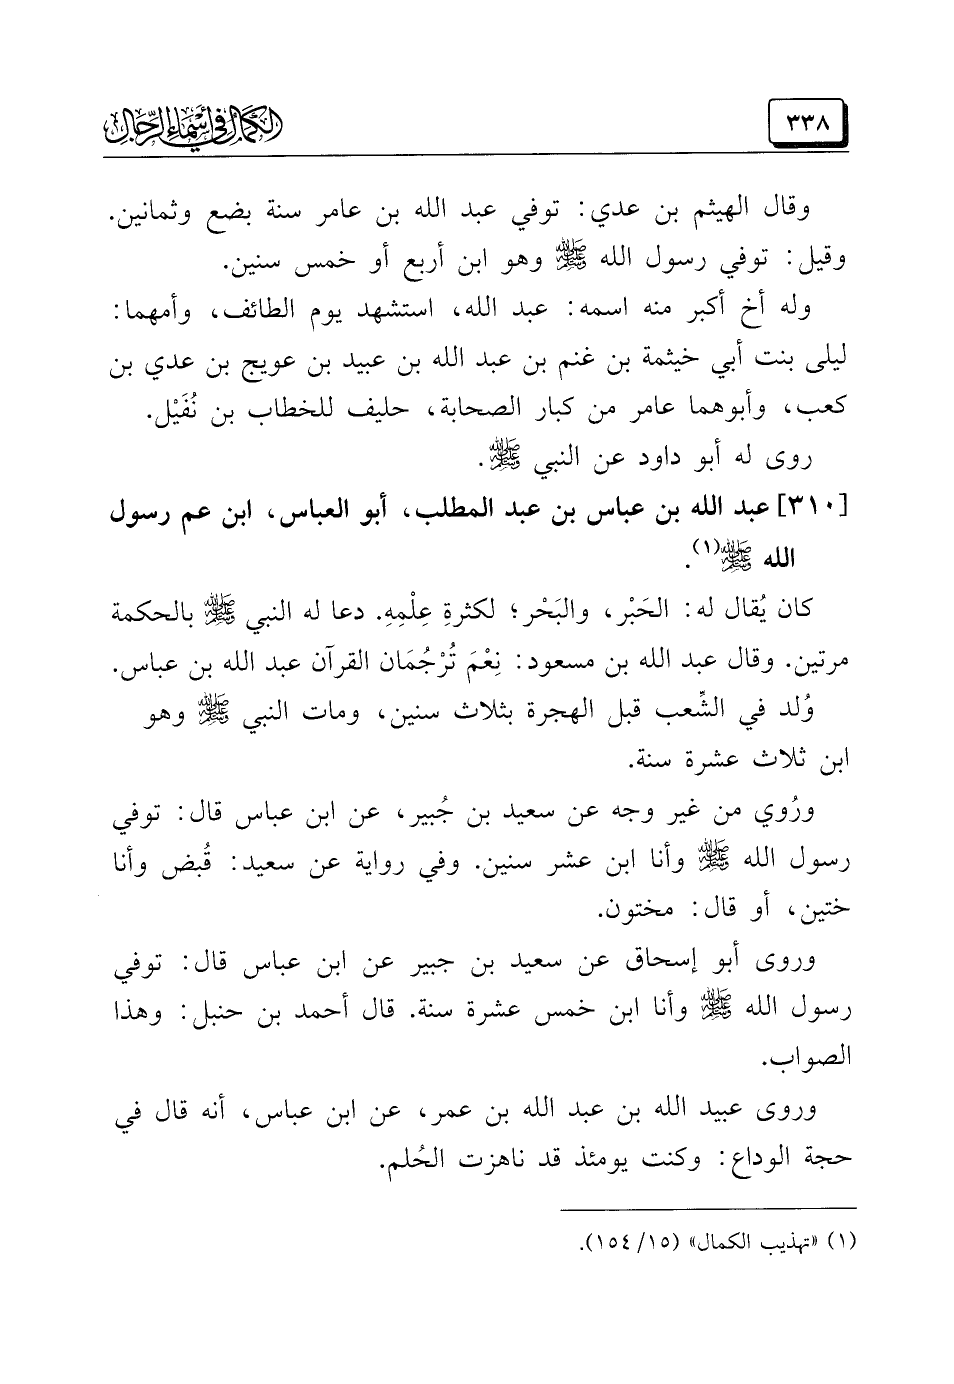 ٣٣٨
الكمال في أسماء الرجال
وقال الهيثم بن عدي: توفي عبد الله بن عامر سنة بضع وثمانين.
وقيل: توفي رسول الله ﷺ وهو ابن أربع أو خمس سنين.
وله أخ أكبر منه اسمه: عبد الله، استشهد يوم الطائف، وأمهما:
ليلى بنت أبي خيثمة بن غنم بن عبد الله بن عبيد بن عويج بن عدي بن
كعب، وأبوهما عامر من كبار الصحابة، حليف للخطاب بن نُفَيْل.
روى له أبو داود عن النبي ﷺ.
[٣١٠] عبد الله بن عباس بن عبد المطلب، أبو العباس، ابن عم رسول
الله ﷺ(١).
كان يُقال له: الحَبْر، والبَحْر؛ لكثرةِ عِلْمِهِ. دعا له النبي ﷺ بالحكمة
مرتين. وقال عبد الله بن مسعود: نِعْمَ تُرْجُمَان القرآن عبد الله بن عباس.
وُلد في الشِّعب قبل الهجرة بثلاث سنين، ومات النبي ﷺ وهو
ابن ثلاث عشرة سنة.
ورُوي من غير وجه عن سعيد بن جُبير، عن ابن عباس قال: توفي
رسول الله ﷺ وأنا ابن عشر سنين. وفي رواية عن سعيد: قُبض وأنا
ختين، أو قال: مختون.
وروى أبو إسحاق عن سعيد بن جبير عن ابن عباس قال: توفي
رسول الله ﷺ وأنا ابن خمس عشرة سنة. قال أحمد بن حنبل: وهذا
الصواب.
وروى عبيد الله بن عبد الله بن عمر، عن ابن عباس، أنه قال في
حجة الوداع: وكنت يومئذ قد ناهزت الحُلم.
(١) «تهذيب الكمال» (١٥/ ١٥٤).